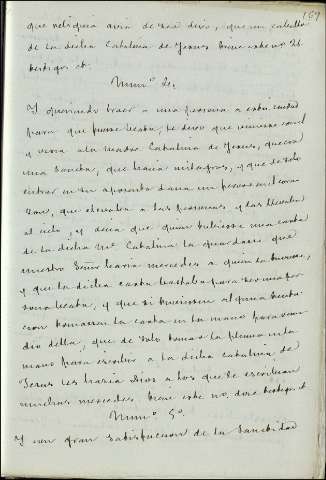 169
que reliquia avia de ser dixo, que un cabello
de la dicha Catalina de Jesus tiene este nº 26
testigos et.
Numº. 4º.
Y queriendo traer a una persona a esta ciudad
para que fuese beata, le dixo que viniese con el
y veria a la Madre Catalina de Jesus, que era
una Sancta, que hacia milagros, y que de solo
entrar en su aposento dava un
que elevaba a las personas y las llevaba
al cielo, y decia que quien tubiesse una carta
de la dicha Me. Catalina la guardasse que
nuestro Señor haria mercedes a quien la tuviesse,
y que la dicha carta bastaba para ser una per
sona beata, y que si tuviessen alguna tenta
cion tomassen la carta en la mano para reme
dio della, que de solo tomar la pluma en la
mano para escribir a la dicha Catalina de
Jesus les haria Dios a los que le escribian
muchas mercedes. tiene este no. doce testigos et
Numº. 5º.
Y en gran satisfacion de la Sanctidad